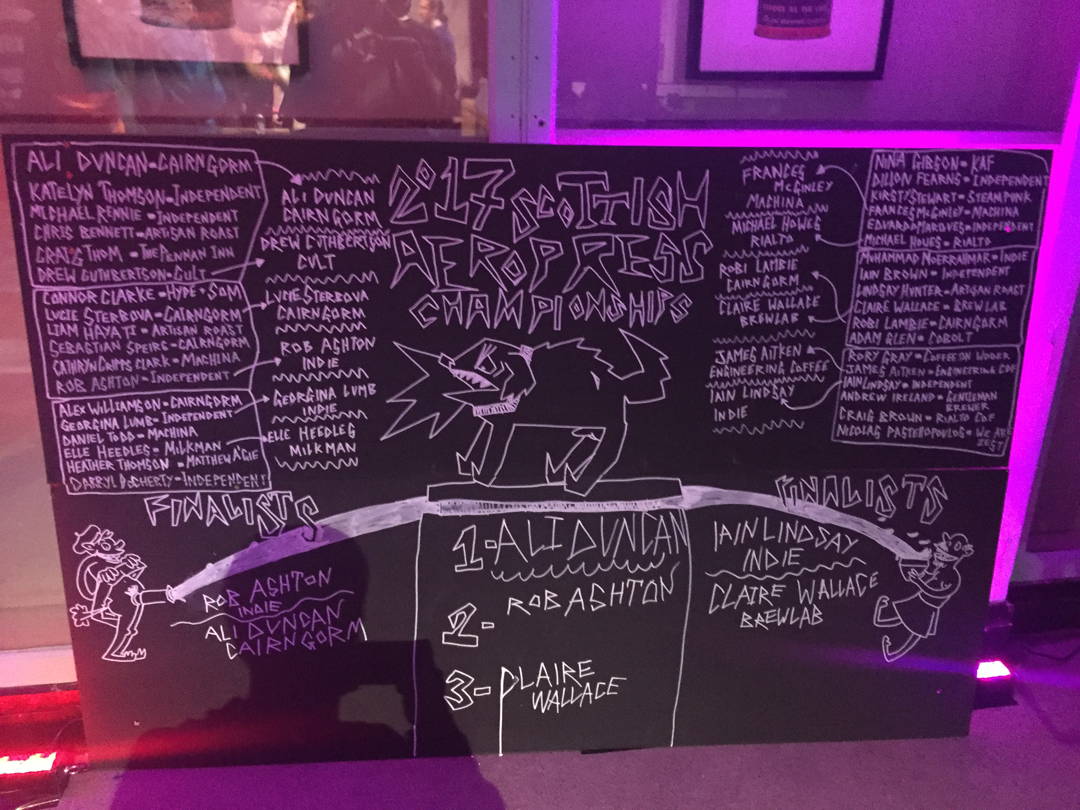 ALI DUNCAN-CAIRNGORM
KATELYN THOMSON-INDEPENDENT
MICHAEL RENNIE-INDEPENDENT
CHRIS BENNETT-ARTISAN ROAST
CRAIG THOM-THE PENNAN INN
DREW CUTHBERTSON-CULT
CONNOR CLARKE-HYPE+SOM
LUCIE STERBOVA-CAIRNGORM
LIAM HAYATI-ARTISAN ROAST
SEBASTIAN SPEIRS-CAIRNGORM
CATHRYN CLARK-MACHINA
ROB ASHTON-INDEPENDENT
ALEX WILLIAMSON-CAIRNGORM
GEORGINA LUMB-INDEPENDENT
DANIEL TODD-MACHINA
ELLE HEEDLES-MILKMAN
HEATHER THOMSON-MATTHEW ALGIE
DARRYL DOCHERTY-INDEPENDENT
ALI DUNCAN
CAIRNGORM
DREW CUTHBERTSON
CULT
LUCIE STERBOVA
CAIRNGORM
ROB ASHTON
INDIE
GEORGINA LUMB
INDIE
ELLE HEEDLES
MILKMAN
2017 SCOTTISH
AEROPRESS
CHAMPIONSHIPS
FRANCES
MCGINLEY
MACHINA
MICHAEL HOWES
RIALTO
ROBI LAMBIE
CAIRNGORM
CLAIRE WALLACE
BREWLAB
JAMES AITKEN
ENGINEERING COFFEE
IAIN LINDSAY
INDIE
NINA GIBSON-KAF
DILION FEARNS-INDEPENDENT
KIRSTY STEWART-STEAMPUNK
FRANCES MCGINLEY-MACHINA
-INDEPENDENT
MICHAEL HOWES-RIALTO
MUHAMMAD -INDIE
IAIN BROWN-INDEPENDENT
LINDSAY HUNTER-ARTISAN ROAST
CLAIRE WALLACE-BREWLAB
ROBI LAMBIE-CAIRNGORM
ADAM GLEN-COBOLT
RORY GRAY-COFFEE ON WOOER
JAMES AITKEN-ENGINEERING COF
IAIN LINDSAY-INDEPENDENT
ANDREW IRELAND-GENTLEMAN
BREWER
CRAIG BROWN-RIALTO COF
NICOLAS PASTEROPOULOS-WE ARE
ZEST!
FINALISTS
ROB ASHTON
INDIE
ALI DUNCAN
CAIRNGORM
1-ALI DUNCAN
2-ROB ASHTON
3-CLAIRE
WALLACE
FINALISTS
IAIN LINDSAY
INDIE
CLAIRE WALLACE
BREWLAB